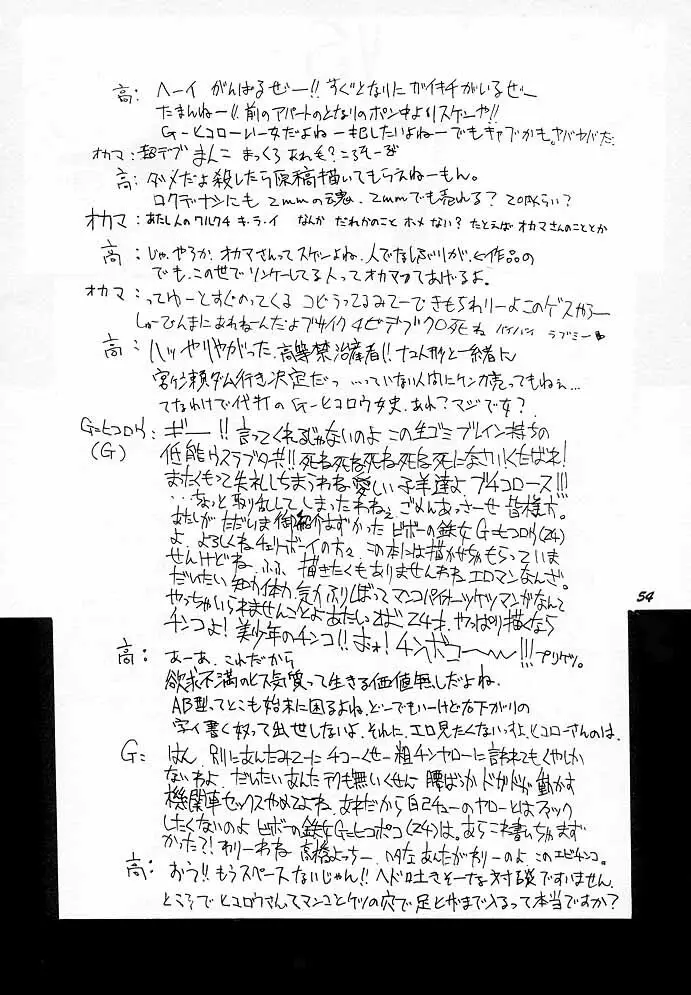 高: ヘーイ がんばるぜー!! すぐとなりにガイキチがいるぜー
たまんねー!! 前のアパートのとなりのポン中よりスゲーや!!
G=ヒコローいー女だよねー 犯したいよねー でもギャグかも。ヤバヤバだ
オカマ: 超デブ まんこ まっくろ あれも? ころすーぞ
高: ダメだよ殺したら原稿描いてもらえねーもん。
ロクデナシにも 2mmの魂、2mmでも売れる? 20円くらい?
オカマ: あたし人のワルクチ キ・ラ・イ なんか だれかのこと ホメない? たとえば オカマさんのこととか
高: じゃ、やろか。オカマさんってスゲーよね。人でなしぶりが、←作品の
でも、この世でソンケーしてる人ってオカマってあげるよ。
オカマ: ってゆーとすぐのってくる コビうってるみてーで きもちわりーよこのゲスやろー
しゅーでんまにあわねーんだよブサイク チビデブクロ死ね バイバイ ラブミー
高: ハッ やりやがった、高等禁治産者!! ナユ人形と一緒に
宮ヶ瀬ダム行き決定だっ …っていない人間にケンカ売ってもねぇ…
てなわけで代打の G=ヒコロウ女史。あれ? マジで女?
G=ヒコロウ:(G) ギー!! 言ってくれるじゃないのよ この生ゴミブレイン持ちの
低能ウスラブタ共!! 死ね死ね死ね死ね死になさいくたばれ!
まったくもって失礼しちまうわね 愛しい子羊達よ ブチコロース!!!
…ちょっと取り乱してしまったわねぇ ごめんあっさーせ 皆様方。
あたしが ただいま御紹介あずかった ビボーの鉄女 G=ヒコロウ(24)
よ、よろしくね チェリーボーイの方々、この本には描かせちゃもらっていま
せんけどね、ふふ、描きたくもありませんわねエロマンなんざ。
だいたい 知力体力気力ふりしぼって マンコパイオーツケツマンがなんて
やっちゃいられませんことよ あたしってば 24才、やっぱり描くなら
チンコよ! 美少年のチンコ!! まぁ! チンボコ〜〜!!! プリケツ。
高: あーあ、これだから
欲求不満のヒス気質って生きる価値無しだよね。
AB型ってとこも始末に困るよね、どーでもいーけど右下がりの
字ィ書く奴って出世しないよ。それに、エロ見たくないっすよ、ヒコローさんのは、
G= はん、別にあんたみてーに チコーくせー粗チンヤローに言われてもくやしか
ないわよ だいたいあんた テクも無いくせに 腰ばっか ドカドカ動かす
機関車セックスやめてよね、これだから自己チューのヤローとはファック
したくないのよ ビボーの鉄女G=ヒコポコ(24)は。あらこれ書いちゃまず
かった?! わりーわね 高橋よっちー、 あんたがわりーのよ、このエビチンコ。
高: おう!! もうスペースないじゃん!! ヘドロ吐きそーな対談ですいません、
ところで ヒコロウさんってマンコとケツの穴で 足とかまで入るって本当ですか?
54